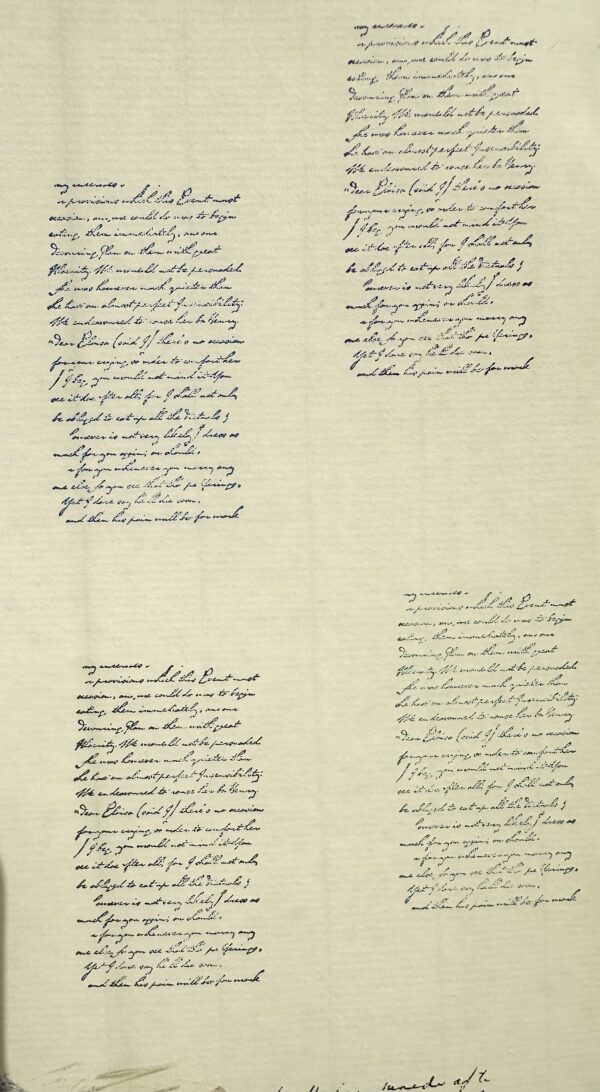 my
provisions which this Event most
occasion, we could do was to begin
eating them immediately,
devouring Plan on them with great
We would not be persuaded
She was however much quieter than
she has an almost perfect Insensibility
We endeavoured to rouse her
"dear Eloisa (said I) there's no occasion
for your crying, order to comfort her
I beg you would not mind it
see it after all; for I shall not only
be obliged to eat up all the Victuals;
however is not very likely I dress as
much for you again; or should.
for you whenever you marry any
one else, so you see that tho
Yet I dare say he'll die soon.
and then his pain will be for work
my
provisions which this Event most
occasion, we could do was to begin
eating them immediately,
devouring Plan on them with great
We would not be persuaded
She was however much quieter than
she has an almost perfect Insensibility
We endeavoured to rouse her
"dear Eloisa (said I) there's no occasion
for your crying, order to comfort her
I beg you would not mind it
see it after all; for I shall not only
be obliged to eat up all the Victuals;
however is not very likely I dress as
much for you again; or should.
for you whenever you marry any
one else, so you see that tho
Yet I dare say he'll die soon.
and then his pain will be for work
my
provisions which this Event most
occasion, we could do was to begin
eating them immediately,
devouring Plan on them with great
We would not be persuaded
She was however much quieter than
she has an almost perfect Insensibility
We endeavoured to rouse her
"dear Eloisa (said I) there's no occasion
for your crying, order to comfort her
I beg you would not mind it
see it after all; for I shall not only
be obliged to eat up all the Victuals;
however is not very likely I dress as
much for you again; or should.
for you whenever you marry any
one else, so you see that tho
Yet I dare say he'll die soon.
and then his pain will be for work
my
provisions which this Event most
occasion, we could do was to begin
eating them immediately,
devouring Plan on them with great
We would not be persuaded
She was however much quieter than
she has an almost perfect Insensibility
We endeavoured to rouse her
"dear Eloisa (said I) there's no occasion
for your crying, order to comfort her
I beg you would not mind it
see it after all; for I shall not only
be obliged to eat up all the Victuals;
however is not very likely I dress as
much for you again; or should.
for you whenever you marry any
one else, so you see that tho
Yet I dare say he'll die soon.
and then his pain will be for work